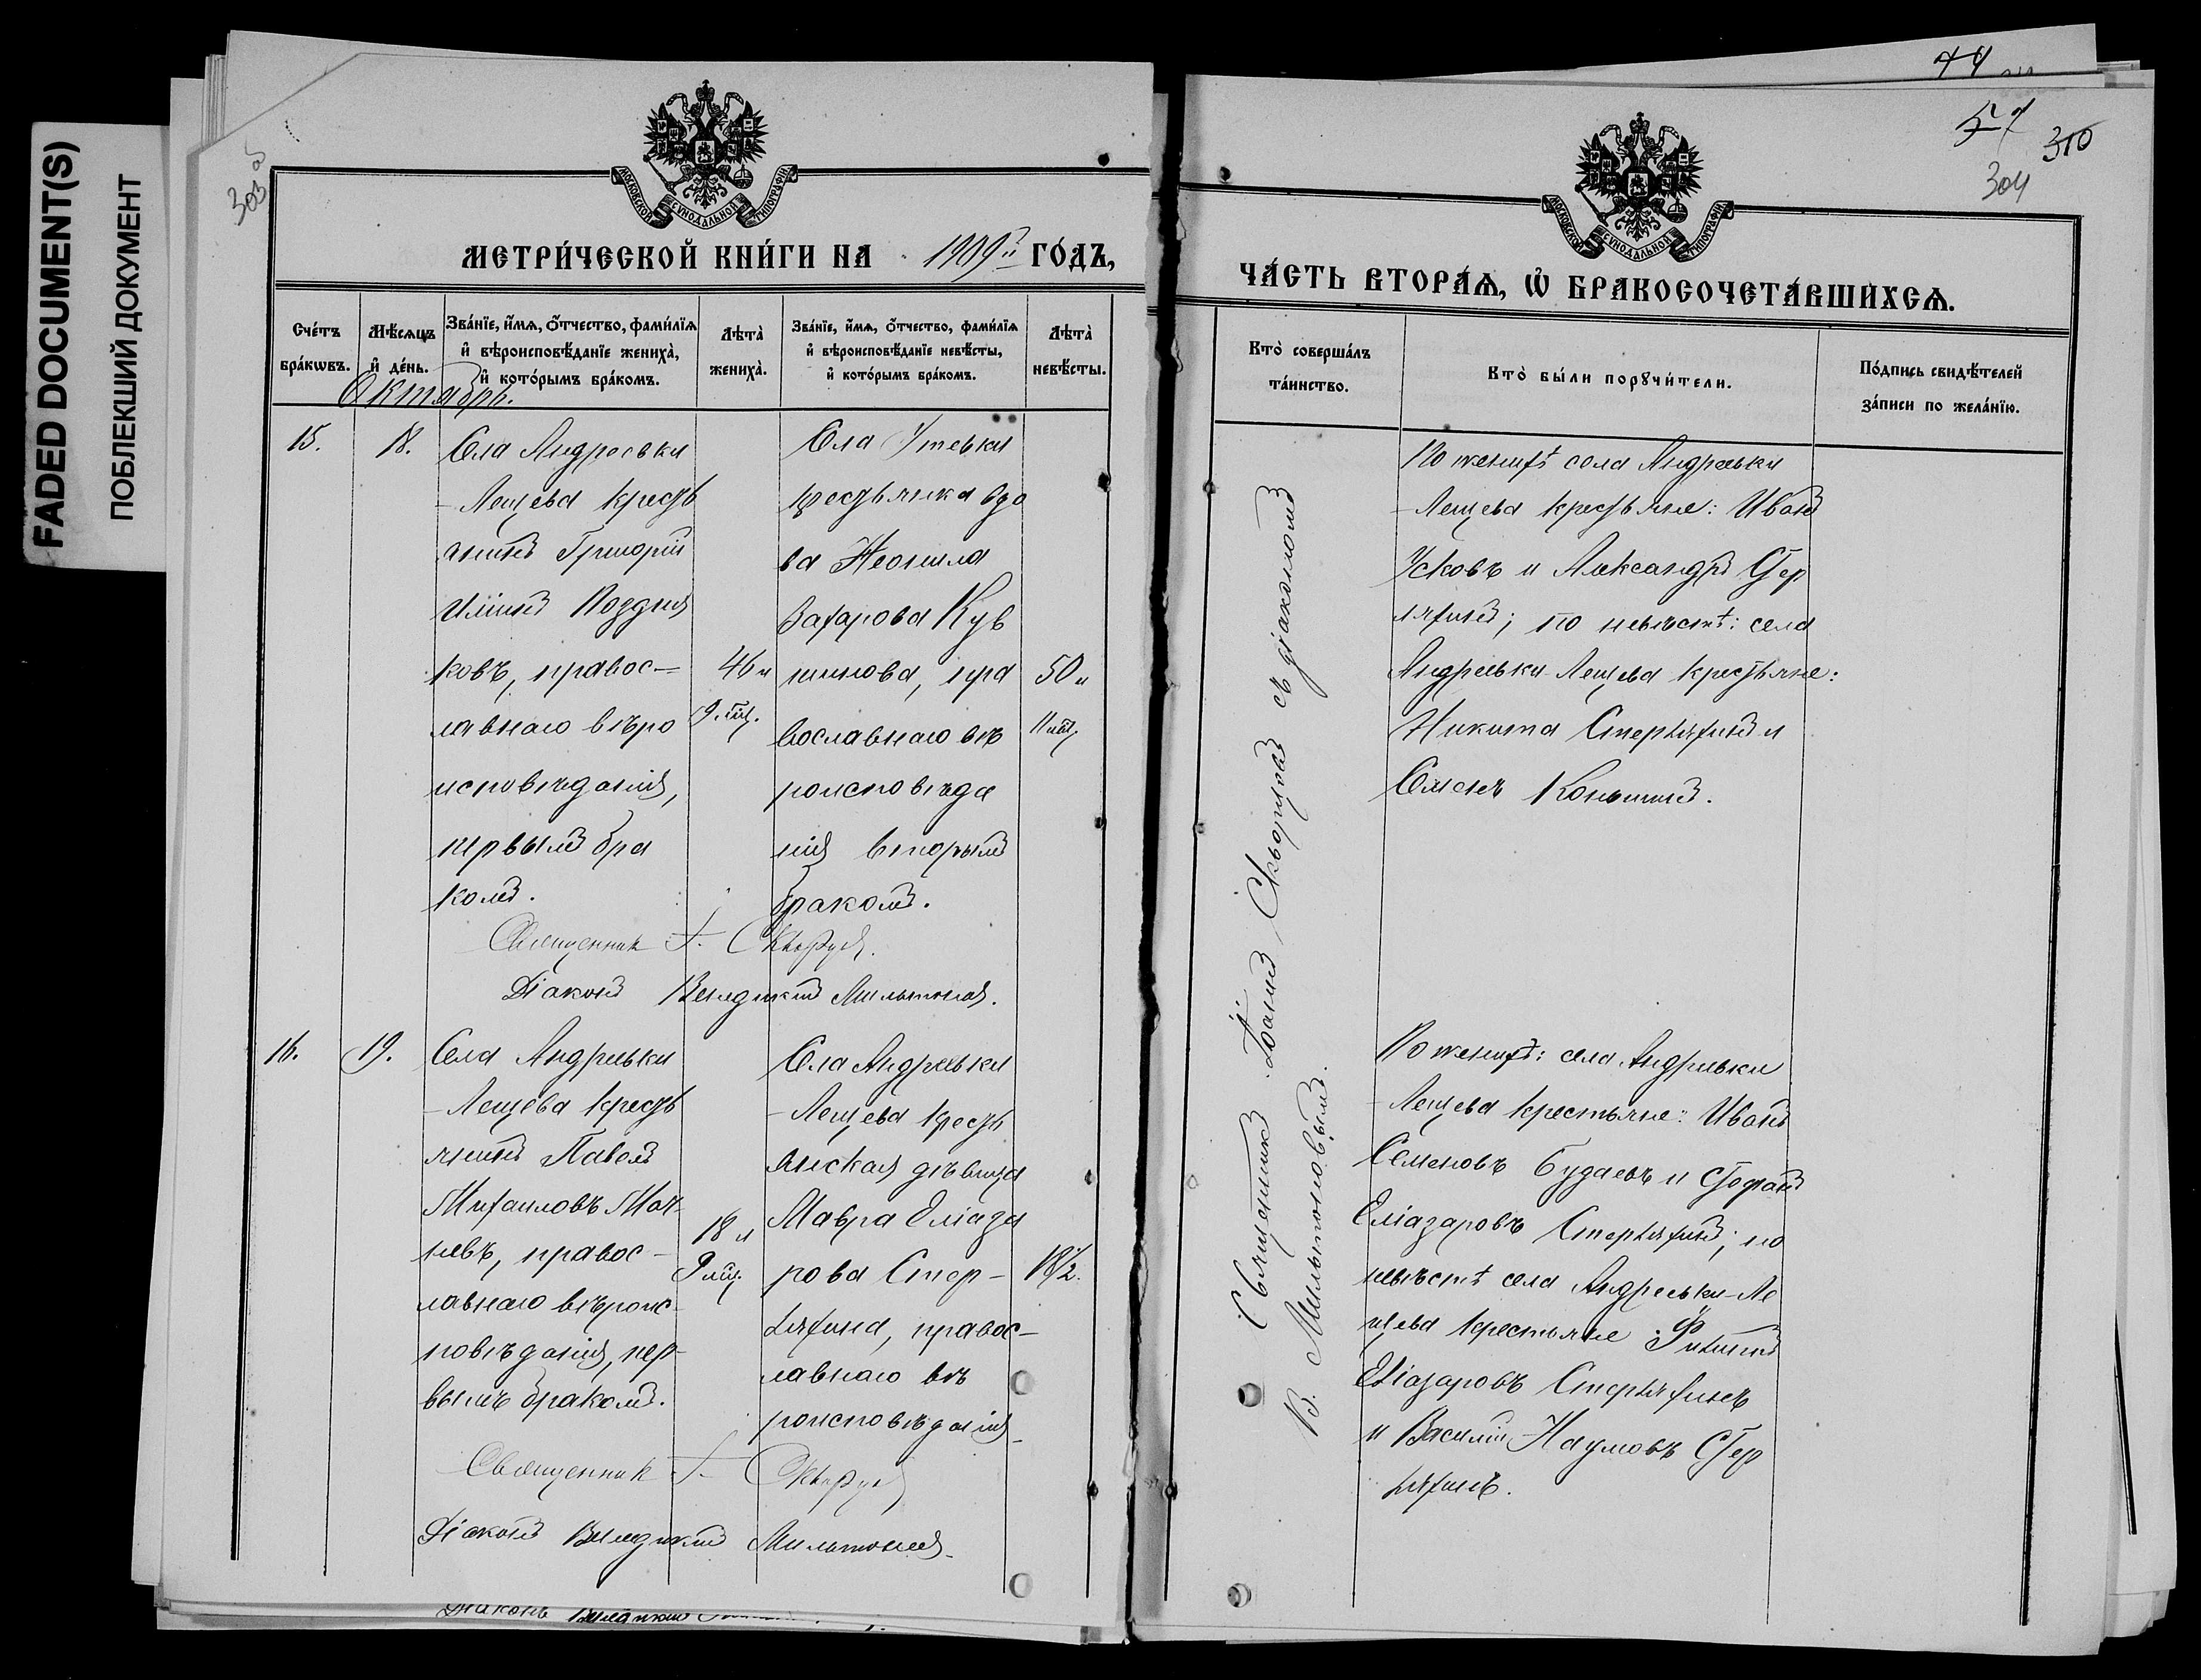 FADED DOCUMENT(S)
ПОБЛЕКШИЙ ДОКУМЕНТ
303 об
МОСКОВСКОЙ СѴНОДАЛЬНОЙ ТИПОГРАФІИ
МЕТРИ́ЧЕСКОЙ КНИ́ГИ НА 1909й ГО́ДЪ,
Сче́тъ бра́кѡвъ.
Мѣ́сѧцъ и҆ де́нь.
Зва́нїе, и҆́мѧ, ѻ҆́тчество, фами́лїѧ
и҆ вѣроисповѣ́данїе жениха̀,
и҆ кото́рымъ бра́комъ.
Лѣта̀ жениха̀.
Зва́нїе, и҆́мѧ, ѻ҆́тчество, фами́лїѧ
и҆ вѣроисповѣ́данїе невѣ́сты,
и҆ кото́рымъ бра́комъ.
Лѣта̀ невѣ́сты.
Октябрь.
15.
18.
Села Андреевки
-Лещева кресть
янинъ Григорій
Ильинъ Поздня
ковъ, правос-
лавнаго вѣро
исповѣданія,
первымъ бра
комъ.
46 л
9. мц.
Села Утевки
крестьянка вдо
ва Неонила
Захарова Кув
шинова, пра
вославнаго вѣ
роисповѣда
нія вторымъ
бракомъ.
50 л
11 мц.
Священник І. Скворцов.
Діаконъ Венедиктъ Мильтонов.
16.
19.
Села Андреевки
-Лещева кресть
янинъ Павелъ
Михаиловъ
правос-
лавнаго вѣроис-
повѣданія, пер-
вымъ бракомъ.
18 л
9 мц.
Села Андреевки
-Лещева кресть
янская дѣвица
Мавра Еліаза
рова Стер-
ляхина, правос-
лавнаго вѣ
роисповѣданія
18½.
Священник І. Скворцов
Діаконъ Венедиктъ Мильтонов.
44
57
310
304
МОСКОВСКОЙ СѴНОДАЛЬНОЙ ТИПОГРАФІИ
ЧА́СТЬ ВТОРА́Ѧ, Ѡ҆ БРАКОСОЧЕТА́ВШИХСѦ.
Кто̀ соверша́лъ та́инство.
Кто̀ бы́ли порꙋчи́тели.
По́дпись свидѣ́телей за́писи по жела́нїю.
Священникъ Іоаннъ Скворцовъ съ діакономъ
В. Мильтоновымъ.
По женихѣ села Андреевки
-Лещева крестьяне: Иванъ
Усковъ и Александръ Стер
ляхинъ; по невѣстѣ: села
Андреевки-Лещева крестьяне:
Никита Стерляхинъ и
Семенъ Коньшинъ.
По женихѣ: села Андреевки
-Лещева крестьяне: Иванъ
Семеновъ Будаевъ и Стефанъ
Еліазаровъ Стерляхинъ; по
невѣстѣ села Андреевки-Ле
щева крестьяне Филиппъ
Еліазаровъ Стерляхинъ
и Василій Наумовъ Стер
ляхинъ.